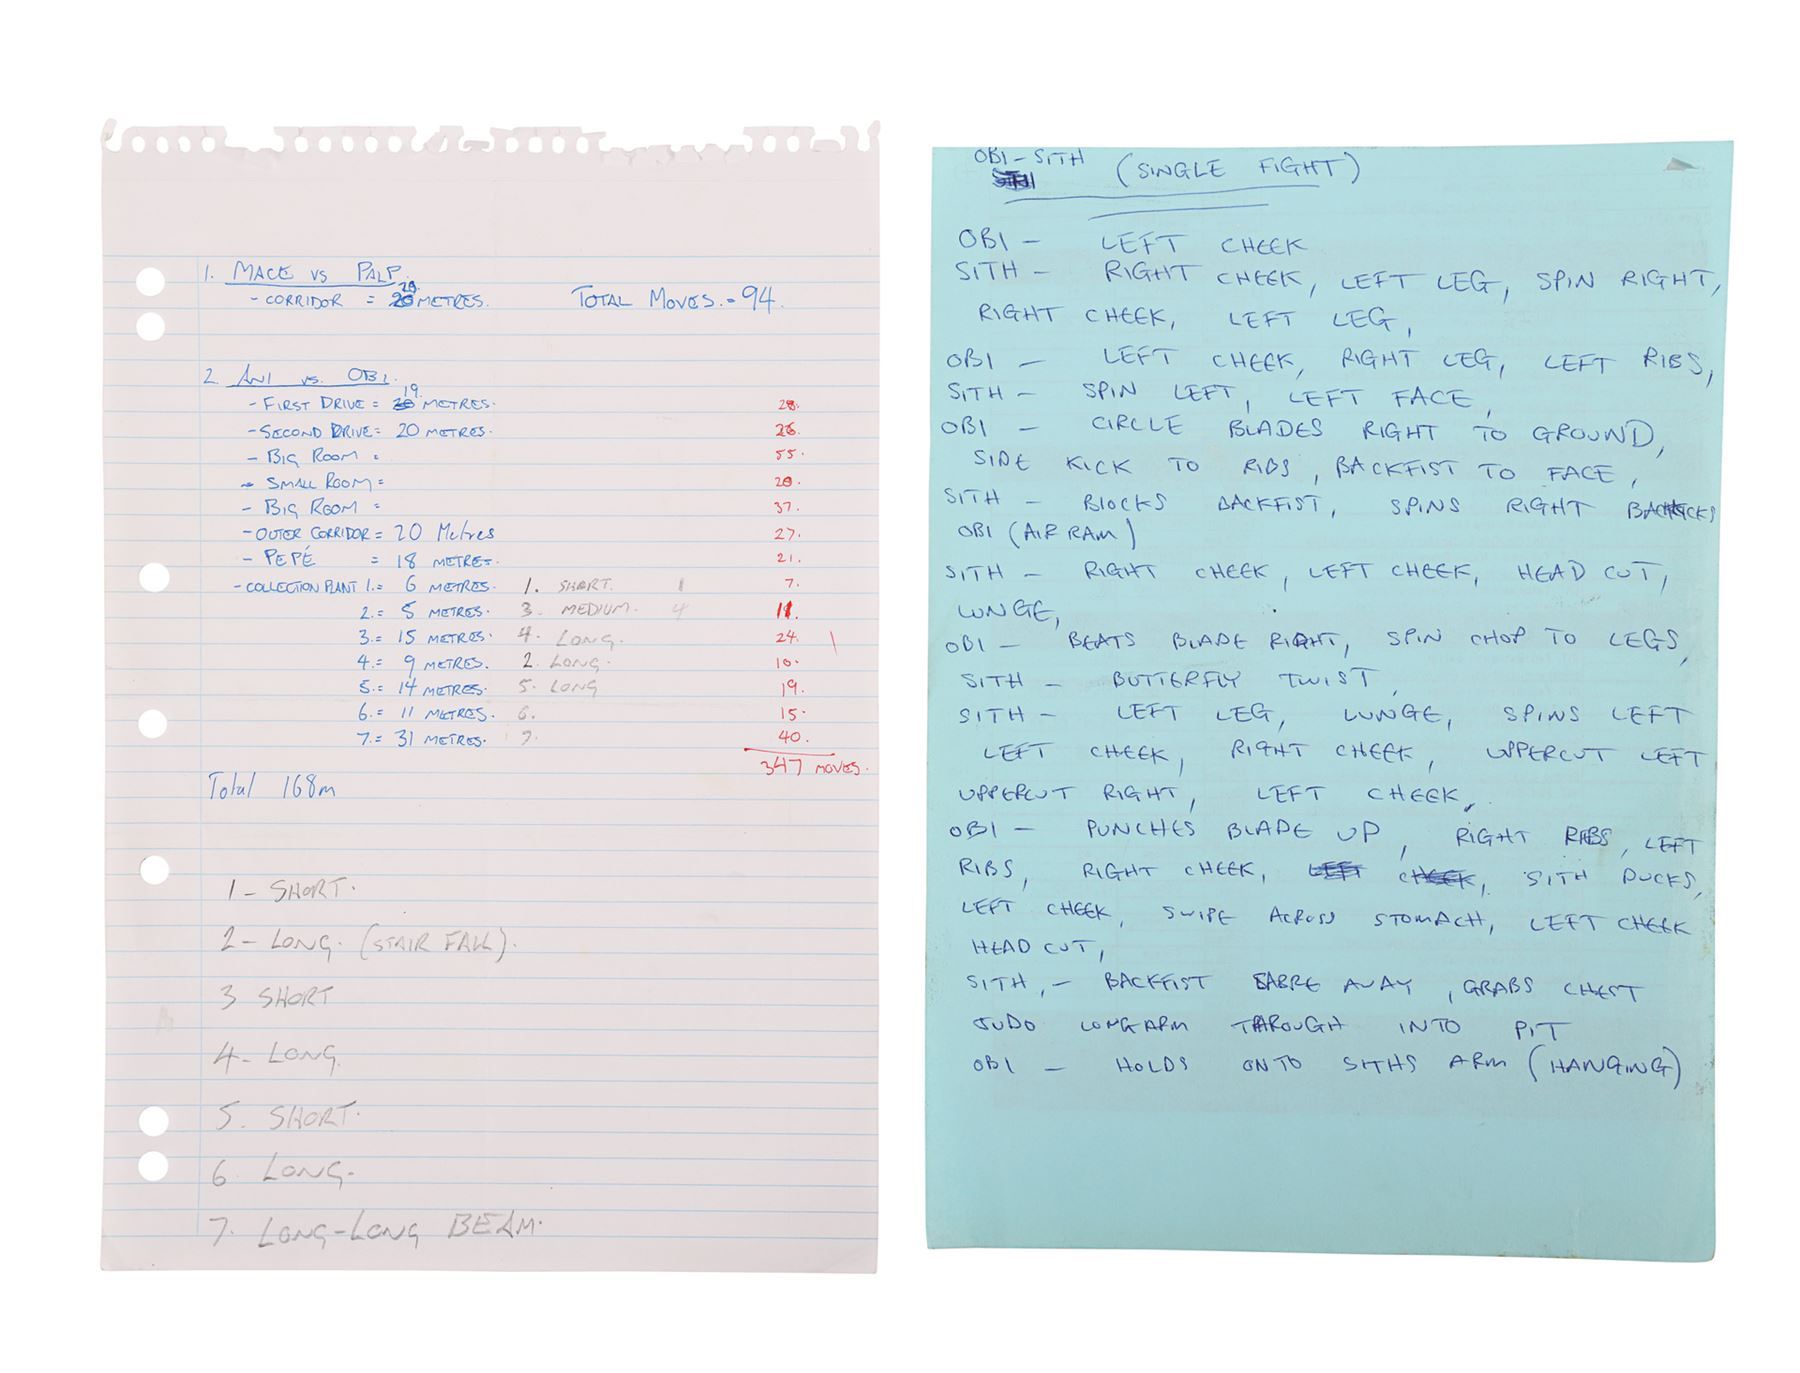 1. MACE VS PALP.
- CORRIDOR = 28 METRES. TOTAL MOVES. = 94.
2. ANI VS. OBI.
- FIRST DRIVE = 19 METRES. 28.
- SECOND DRIVE = 20 METRES. 26.
- BIG ROOM = 55.
- SMALL ROOM = 28.
- BIG ROOM = 37.
- OUTER CORRIDOR = 20 Metres 27.
- PEPÉ = 18 METRES. 21.
- COLLECTION PLANT 1. = 6 METRES. 1. SHORT. 1 7.
2. = 5 METRES. 3. MEDIUM. 4 11.
3. = 15 METRES. 4. LONG. 24.
4. = 9 METRES. 2. LONG. 10.
5. = 14 METRES. 5. LONG 19.
6. = 11 METRES. 6. 15.
7. = 31 METRES. 7. 40.
347 MOVES.
Total 168m
1 - SHORT.
2 - LONG. (STAIR FALL).
3 SHORT
4 - LONG.
5. SHORT.
6 LONG.
7. LONG-LONG BEAM.
OBI - SITH (SINGLE FIGHT)
OBI - LEFT CHEEK
SITH - RIGHT CHEEK, LEFT LEG, SPIN RIGHT,
RIGHT CHEEK, LEFT LEG,
OBI - LEFT CHEEK, RIGHT LEG, LEFT RIBS,
SITH - SPIN LEFT, LEFT FACE,
OBI - CIRCLE BLADES RIGHT TO GROUND,
SIDE KICK TO RIBS, BACKFIST TO FACE,
SITH - BLOCKS BACKFIST, SPINS RIGHT BACKKICKS
OBI (AIR RAM)
SITH - RIGHT CHEEK, LEFT CHEEK, HEAD CUT,
LUNGE,
OBI - BEATS BLADE RIGHT, SPIN CHOP TO LEGS,
SITH - BUTTERFLY TWIST,
SITH - LEFT LEG, LUNGE, SPINS LEFT
LEFT CHEEK, RIGHT CHEEK, UPPERCUT LEFT
UPPERCUT RIGHT, LEFT CHEEK,
OBI - PUNCHES BLADE UP, RIGHT RIBS, LEFT
RIBS, RIGHT CHEEK, LEFT CHEEK, SITH DUCKS,
LEFT CHEEK, SWIPE ACROSS STOMACH, LEFT CHEEK
HEAD CUT,
SITH, - BACKFIST SABRE AWAY, GRABS CHEST
JUDO LONGARM THROUGH INTO PIT
OBI - HOLDS ONTO SITHS ARM (HANGING)